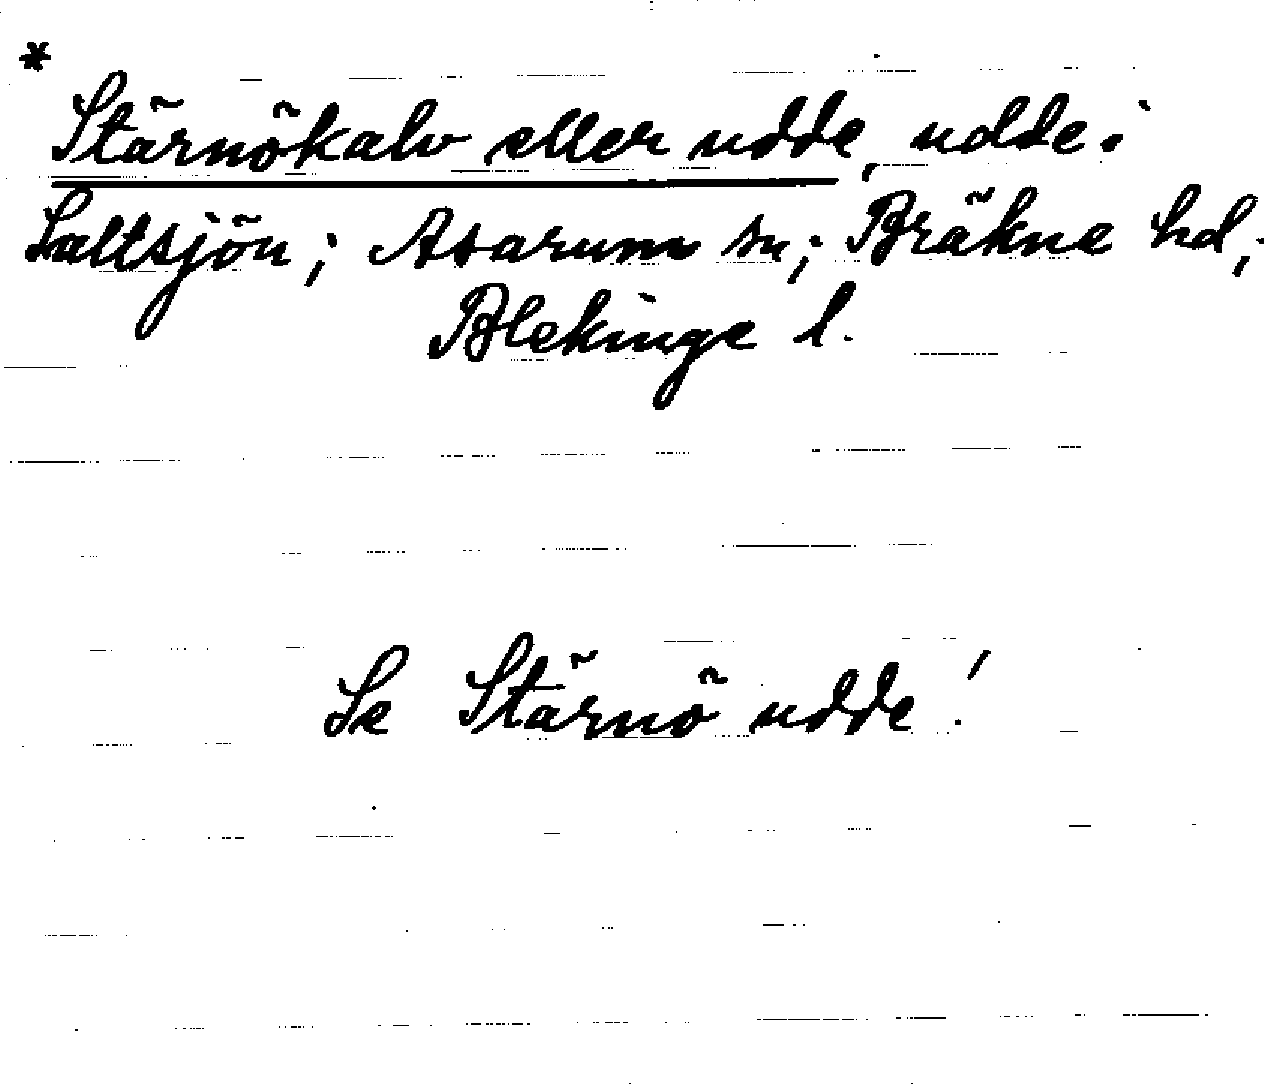 *
Stärnökalv eller udde, udde i
Saltsjön; Asarum sn; Bräkne hd;
Blekinge l.
Se Stärnö udde!